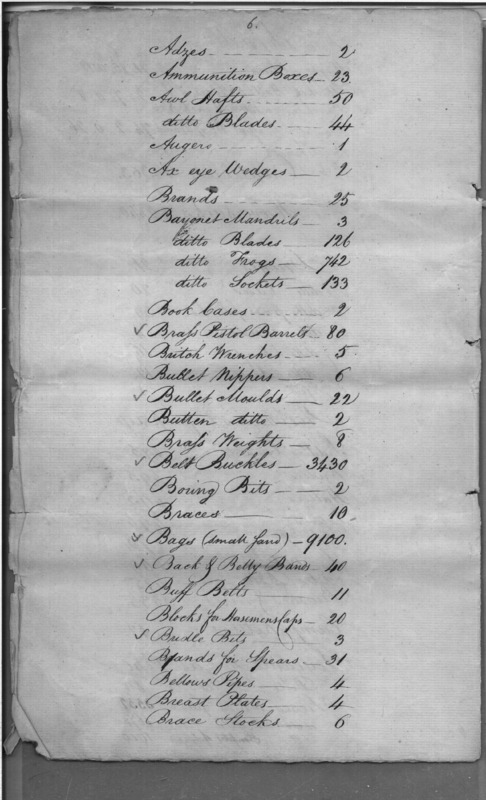 6.
Adzes 2
Ammunition Boxes 23
Awl Hafts 50
ditto Blades 44
Augers 1
Ax eye Wedges 2
Brands 25
Bayonet Mandrils 3
ditto Blades 126
ditto Frogs 742
ditto Sockets 133
Book Cases 2
✓ Brass Pistol Barrels 80
Britch Wrenches 5
Bullet Nippers 6
✓ Bullet Moulds 22
Button ditto 2
Brass Weights 8
✓ Belt Buckles 3430
Boring Bits 2
Braces 10
✓ Bags (small sand) 9100.
✓ Back & Belly Bands 40
Buff Belts 11
Blocks for Horsemens Caps 20
✓ Bridle Bits 3
Brands for Spears 31
Bellows Pipes 4
Breast Plates 4
Brace Stocks 6